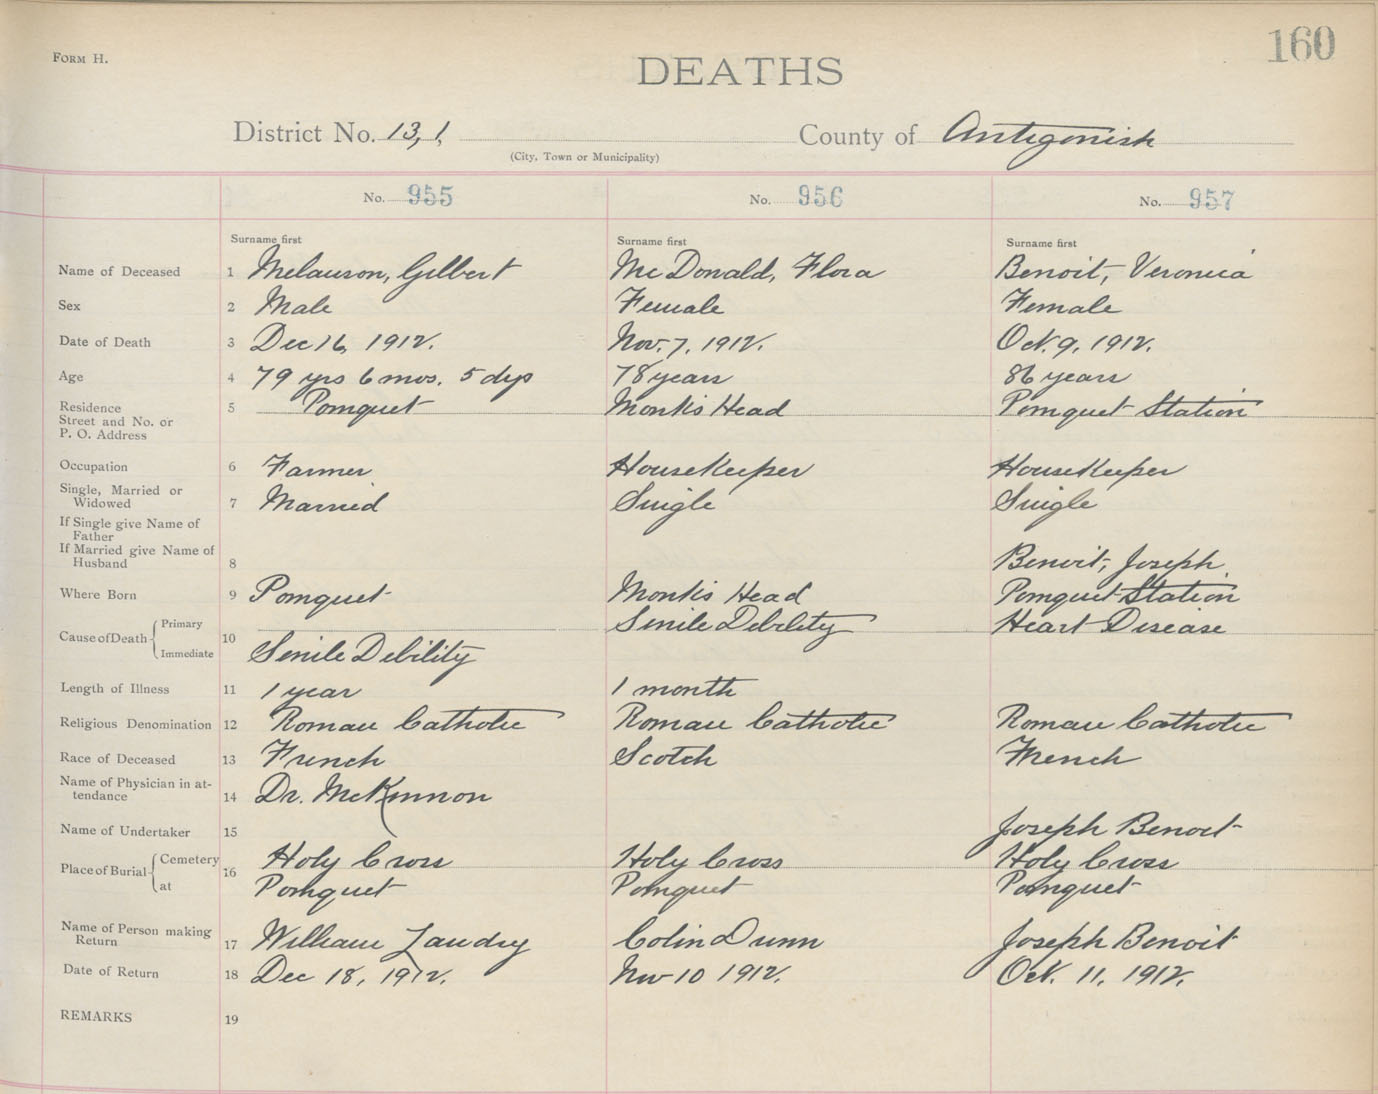 160
FORM H.
DEATHS
District No. 13,1, County of Antigonish
(City, Town or Municipality)
No. 955 No. 956 No. 957
Surname first Surname first Surname first
Name of Deceased 1 Melauson, Gilbert McDonald, Flora Benoit, Veronica
Sex 2 Male Female Female
Date of Death 3 Dec 16, 1912. Nov. 7, 1912. Oct. 9, 1912.
Age 4 79 yrs 6 mos. 5 dys 78 years 86 years
Residence 5 Pomquet Monk's Head Pomquet Station
Street and No. or
P. O. Address
Occupation 6 Farmer Housekeeper Housekeeper
Single, Married or
Widowed 7 Married Single Single
If Single give Name of
Father
If Married give Name of
Husband 8 Benoit, Joseph
Where Born 9 Pomquet Monk's Head Pomquet Station
Cause of Death 10 Primary Senile Debility Heart Disease
Immediate Senile Debility
Length of Illness 11 1 year 1 month
Religious Denomination 12 Roman Catholic Roman Catholic Roman Catholic
Race of Deceased 13 French Scotch French
Name of Physician in at-
tendance 14 Dr. McKinnon
Name of Undertaker 15 Joseph Benoit
Place of Burial 16 Cemetery Holy Cross Holy Cross Holy Cross
at Pomquet Pomquet Pomquet
Name of Person making
Return 17 William Landry Colin Dunn Joseph Benoit
Date of Return 18 Dec 18, 1912. Nov 10 1912. Oct. 11, 1912.
REMARKS 19